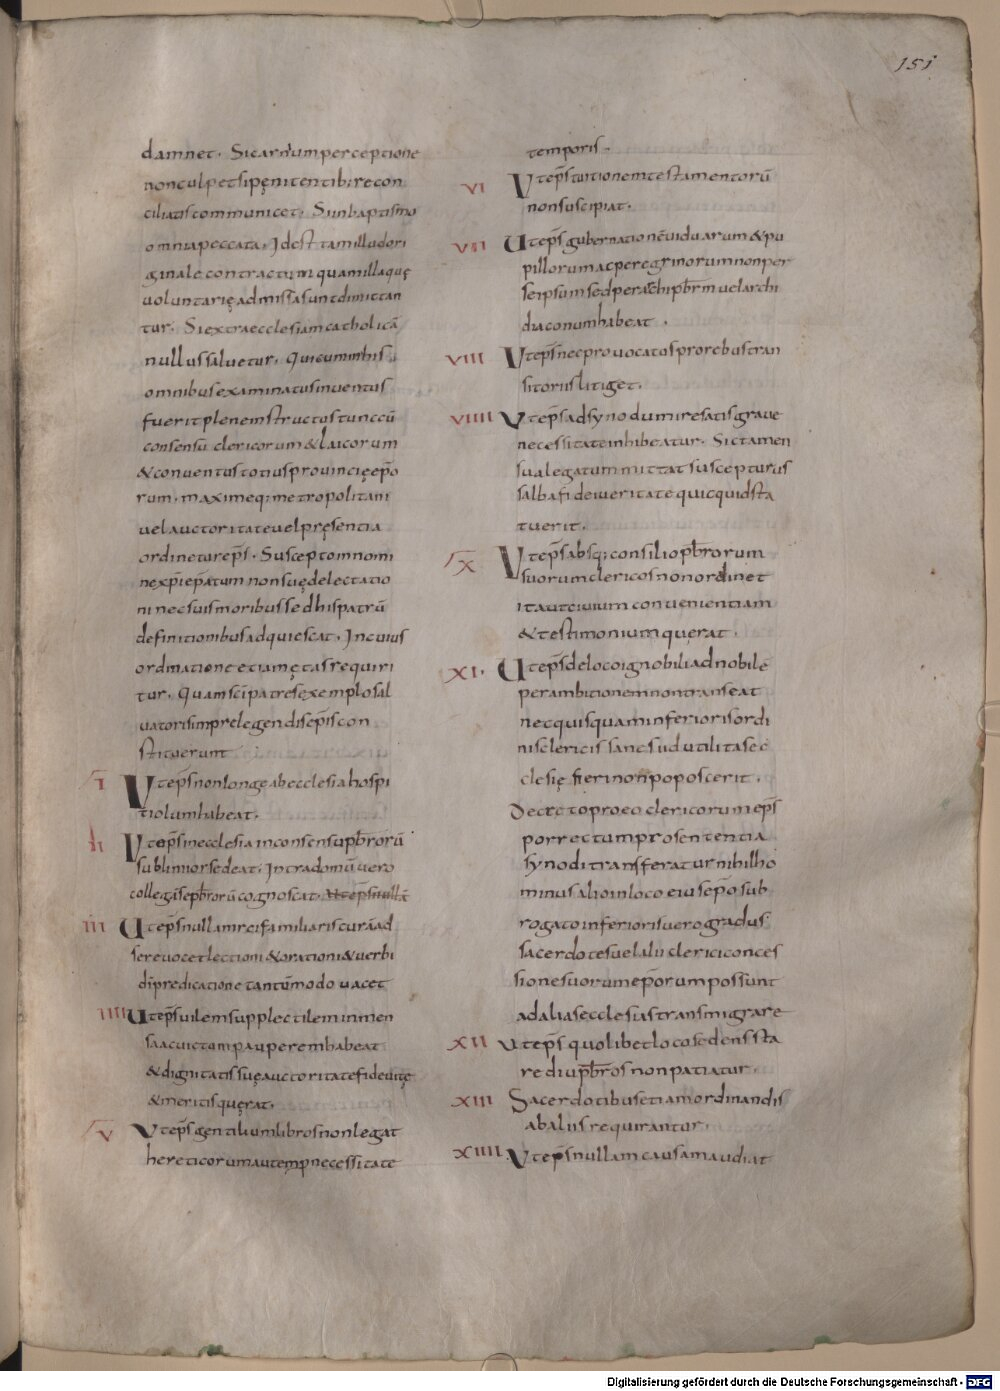 151
damnet. Si carnium perceptione
non culpet si pęnitentib; recon
ciliatis communicet. Si in baptismo
omnia peccata. Id est tam illud ori
ginale contractum quam illa quę
voluntarię admissa sunt dimittan
tur. Si extra ecclesiam catholicā
nullus salvetur. Qui cum in his
omnibus examinatus inventus
fuerit plene instructus tunc cū
consensu clericorum & laicorum
& conventus totius provincię ep̄o
rum. maximeq; metropolitani
vel auctoritate vel pręsentia
ordinetur ep̄s. Suscepto in nomi
ne xp̄i ep̄atum non suę delectatio
ni nec suis moribus sed his patrū
definitionibus adquiescat. In cuius
ordinatione etiam ętas requiri
tur. Quam sc̄i patres exemplo sal
vatoris in prelegendis ep̄is con
stituerunt
I Ut ep̄s non longe ab ecclesia hospi
tiolum habeat.
II Ut ep̄s in ecclesia in consensu pb̄rorū
sublimior sedeat. Intra domū vero
collegā se pb̄rorū cognoscat. Ut ep̄s nullā
III Ut ep̄s nullam rei familiaris curā ad
se revocet lectioni & orationi & verbi
dī predicatione tantūmodo vacet
IIII Ut ep̄s vilem supplectilem in men
sa ac victum pauperem habeat
& dignitatis suę auctoritate fide vitę
& meritis quęrat.
V Ut ep̄s gentilium libros non legat
hereticorum autem p necessitate
temporis.
VI Ut ep̄s tuitionem testamentorū
non suscipiat.
VII Ut ep̄s gubernationē viduarum & pu
pillorum ac peregrinorum non per
se ipsum sed per archipb̄rm vel archi
diaconum habeat.
VIII Ut ep̄s nec provocatus pro rebus tran
sitoriis litiget.
VIIII Ut ep̄s ad synodum ire satis grave
necessitate inhibeatur. Sic tamen
sua legatum mittat suscepturus
salba fidei veritate quicquid sta
tuerit.
X Ut ep̄s absq; consilio pb̄rorum
suorum clericos non ordinet
ita ut civium conuenientiam
& testimonium quęrat.
XI. Ut ep̄s de loco ignobili ad nobilē
per ambitionem non transeat
nec quisquam inferioris ordi
nis clericis sane sud utilitas ec
clesię fieri non poposcerit.
Decreto pro eo clericorum ep̄s
porrectum pro sententia
synodi transferatur nihilho
minus alio in loco eius ep̄o sub
rogato inferioris vero gradus
sacerdotes vel alii clerici conces
sione suorum ep̄orum possunt
ad alias ecclesias transmigrare
XII Ut ep̄s quolibet loco sedens sta
redi vpb̄ros non patiatur.
XIII Sacerdotibus etiam ordinandis
ab aliis requirantur.
XIIII Ut ep̄s nullam causam audiat
Digitalisierung gefördert durch die Deutsche Forschungsgemeinschaft - DFG